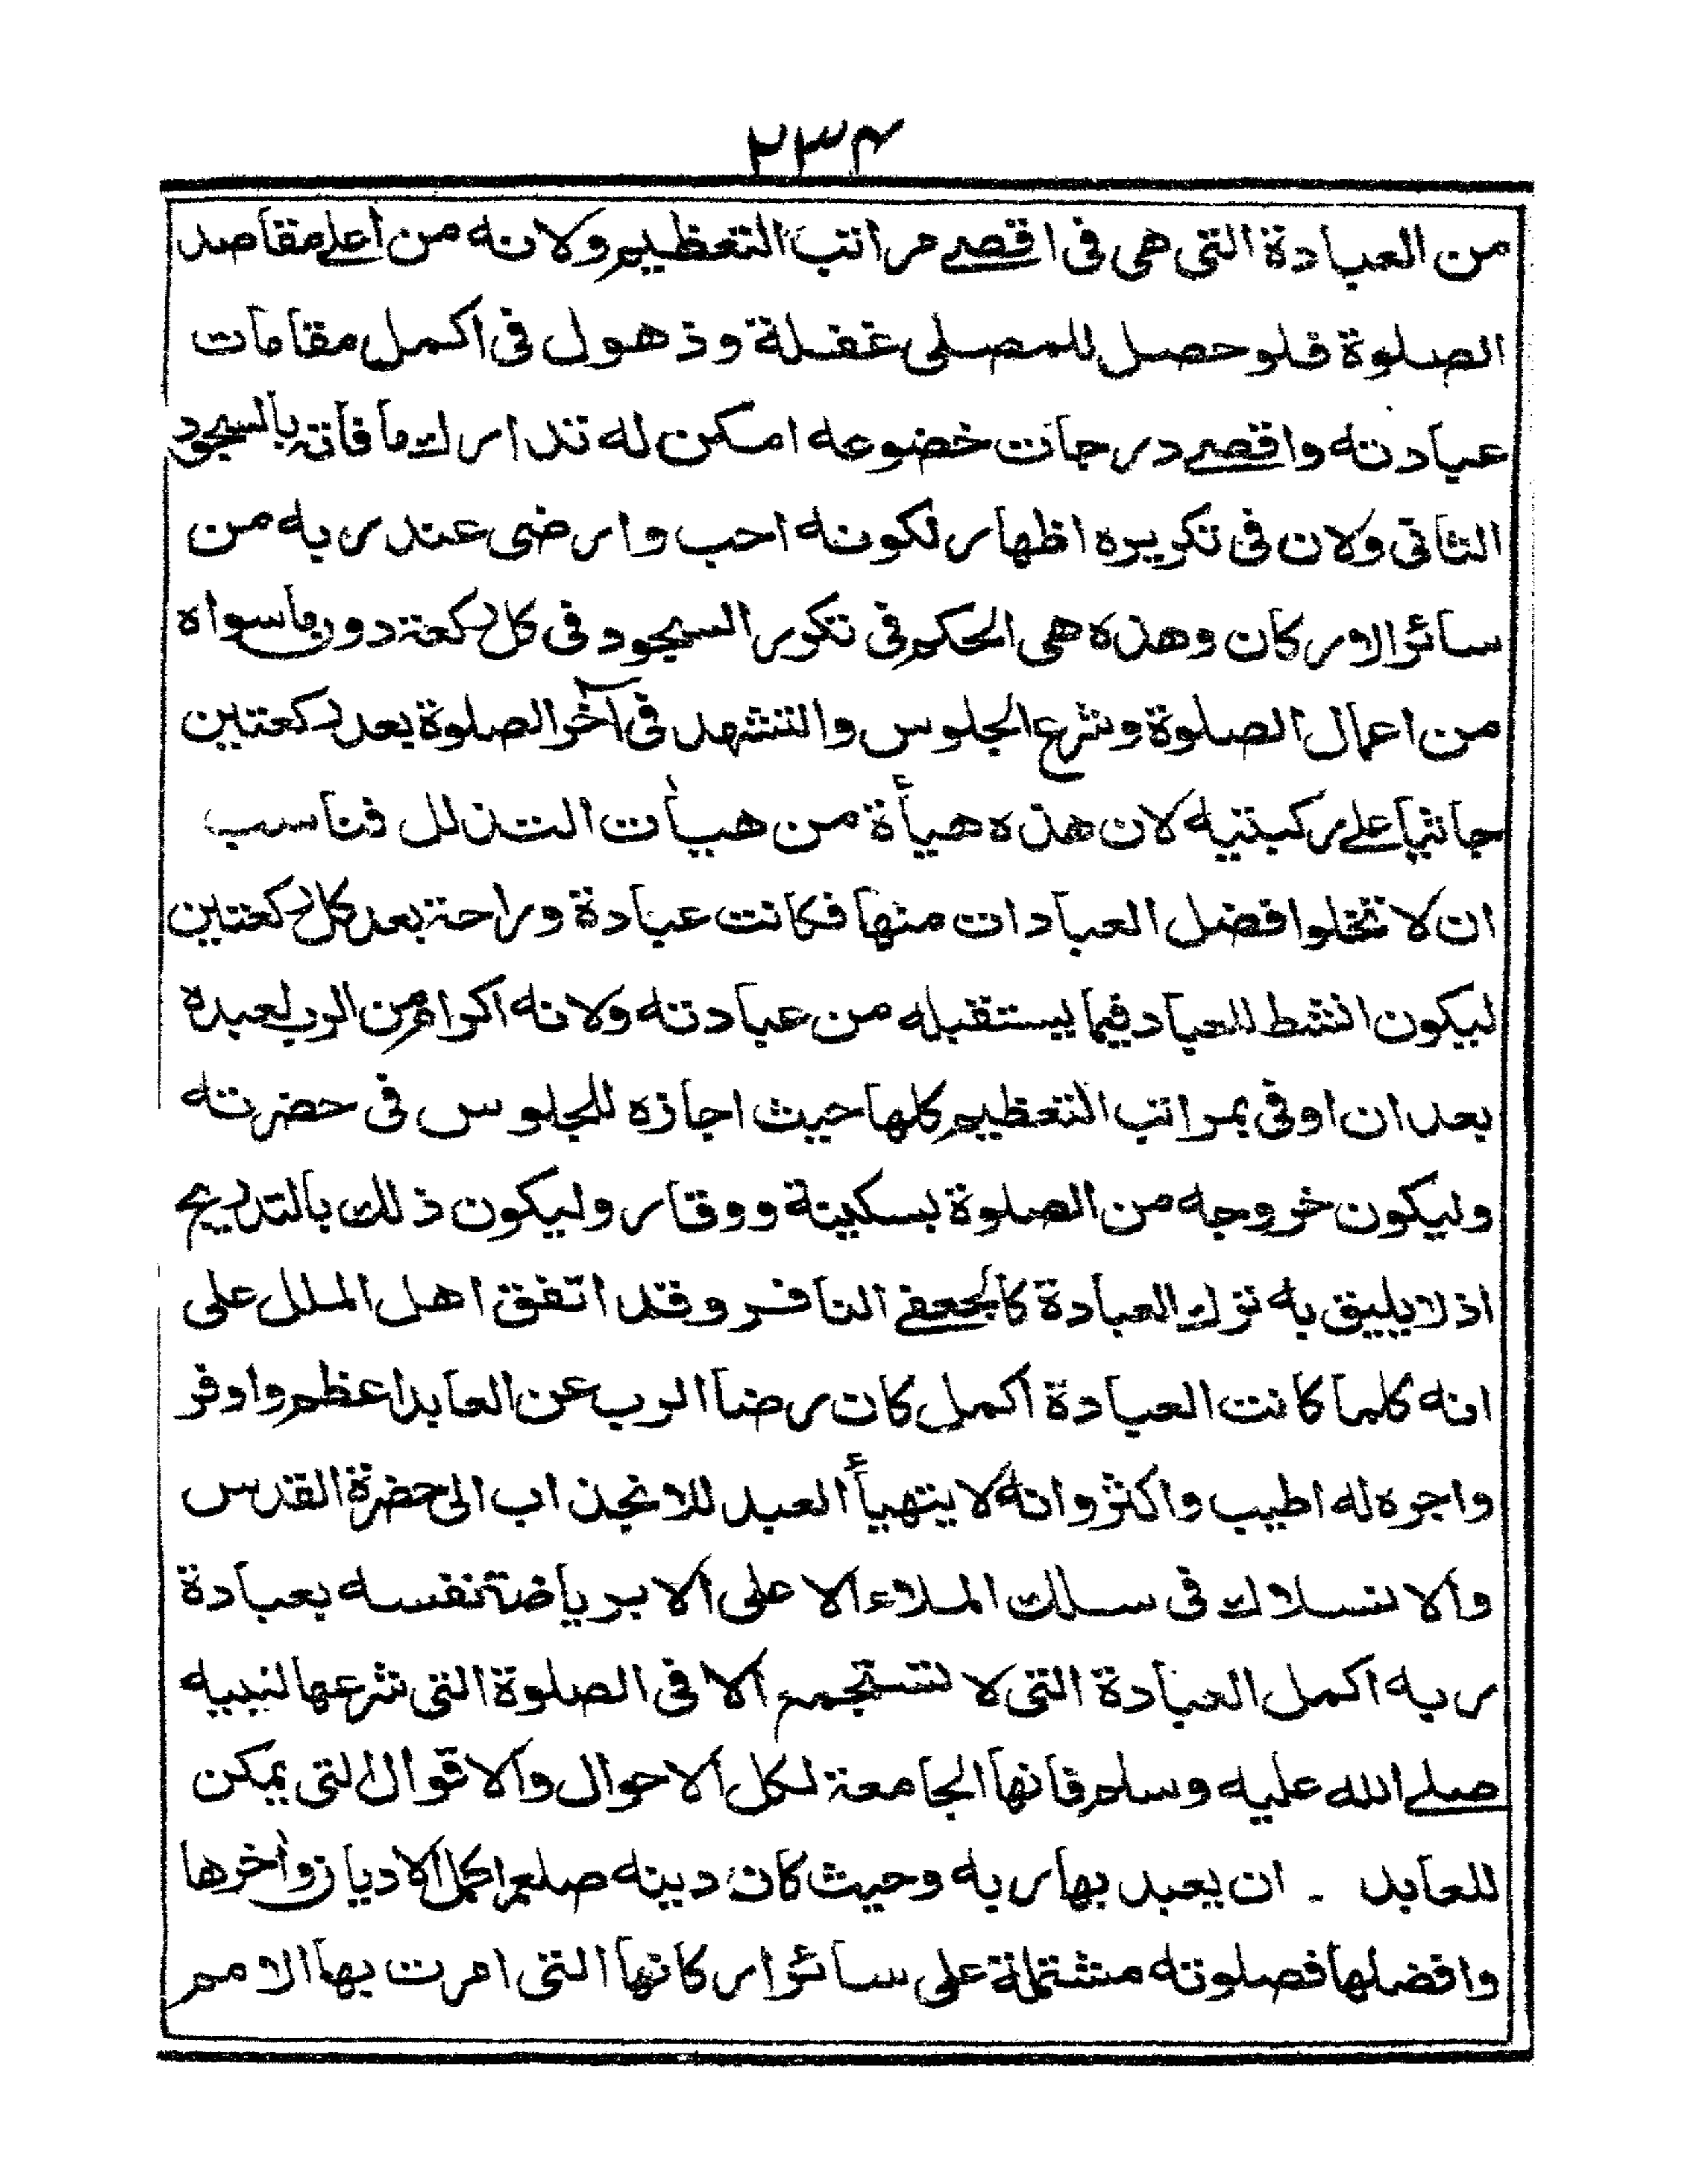 ٢٣٤
من العبادة التى هى فى اقصے مراتب التعظيم ولانه من اعلے مقاصد
الصلوة فلو حصل للمصلى غفلة وذهول فى اكمل مقامات
عبادته واقصے درجات خضوعه امكن له تدارك ما فاته بالسجود
الثانى ولان فى تكريره اظهار لكونه احب وارضى عند ربه من
سائر الاركان وهذه هى الحكم فى تكرر السجود فى كل ركعة دون ما سواه
من اعمال الصلوة وشرع الجلوس والتشهد فى آخر الصلوة بعد ركعتين
جاثيا علے ركبتيه لان هذه هيأة من هيأت التذلل فناسب
ان لا تخلوا فضل العبادات منها فكانت عبادة وراحة بعد كل ركعتين
ليكون انشط للعباد فيما يستقبله من عبادته ولانه اكرام من الرب لعبده
بعد ان اوفى بمراتب التعظيم كلها حيث اجازه للجلوس فى حضرته
وليكون خروجه من الصلوة بسكينة ووقار وليكون ذلك بالتدريج
اذ لا يليق به ترك العبادة كالجعفے النافر وقد اتفق اهل الملل على
انه كلما كانت العبادة اكمل كان رضا الرب عن العابد اعظم واوفر
واجره له اطيب واكثر وانه لا يتهيأ العبد للانجذاب الى حضرة القدس
والانسلاك فى سلك الملاء الا على الا برياضة نفسه بعبادة
ربه اكمل العبادة التى لا تستجمع الا فى الصلوة التى شرعها لنبيه
صلے الله عليه وسلم فانها الجامعة لكل الاحوال والاقوال التى يمكن
للعابد - ان يعبد بها ربه وحيث كان دينه صلعم اكمل الاديان وأخرها
وافضلها فصلوته مشتملة على سائر اركانها التى امرت بها الامم